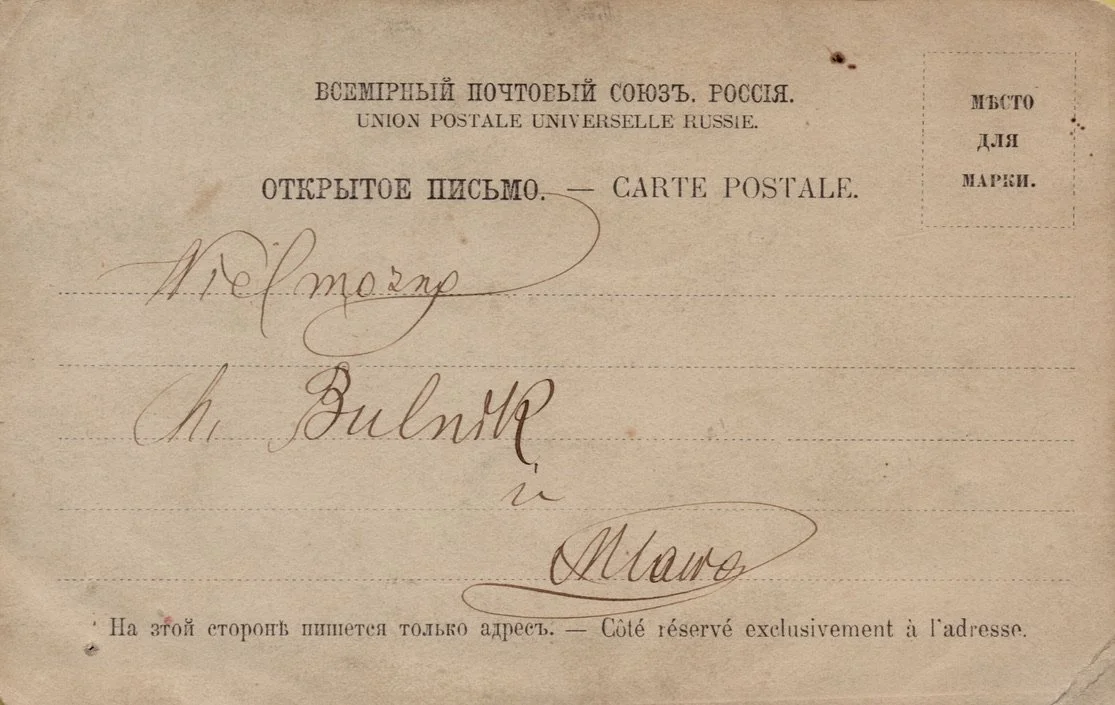 ВСЕМІРНЫЙ ПОЧТОВЫЙ СОЮЗЪ. РОССІЯ.
UNION POSTALE UNIVERSELLE RUSSIE.
МѢСТО
ДЛЯ
МАРКИ.
ОТКРЫТОЕ ПИСЬМО. — CARTE POSTALE.
Wielmożny
Bulnik
Mlawa
На этой сторонѣ пишется только адресъ. — Côté réservé exclusivement à l'adresse.